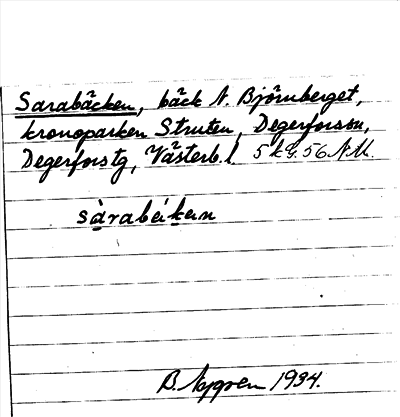 Sarabäcken, bäck N. Björnberget,
kronoparken Struten, Degerforssn,
Degerforstg, Västerb. l. 5 kg. 56 N.M.
sàrabéken
B. Nygren 1934.